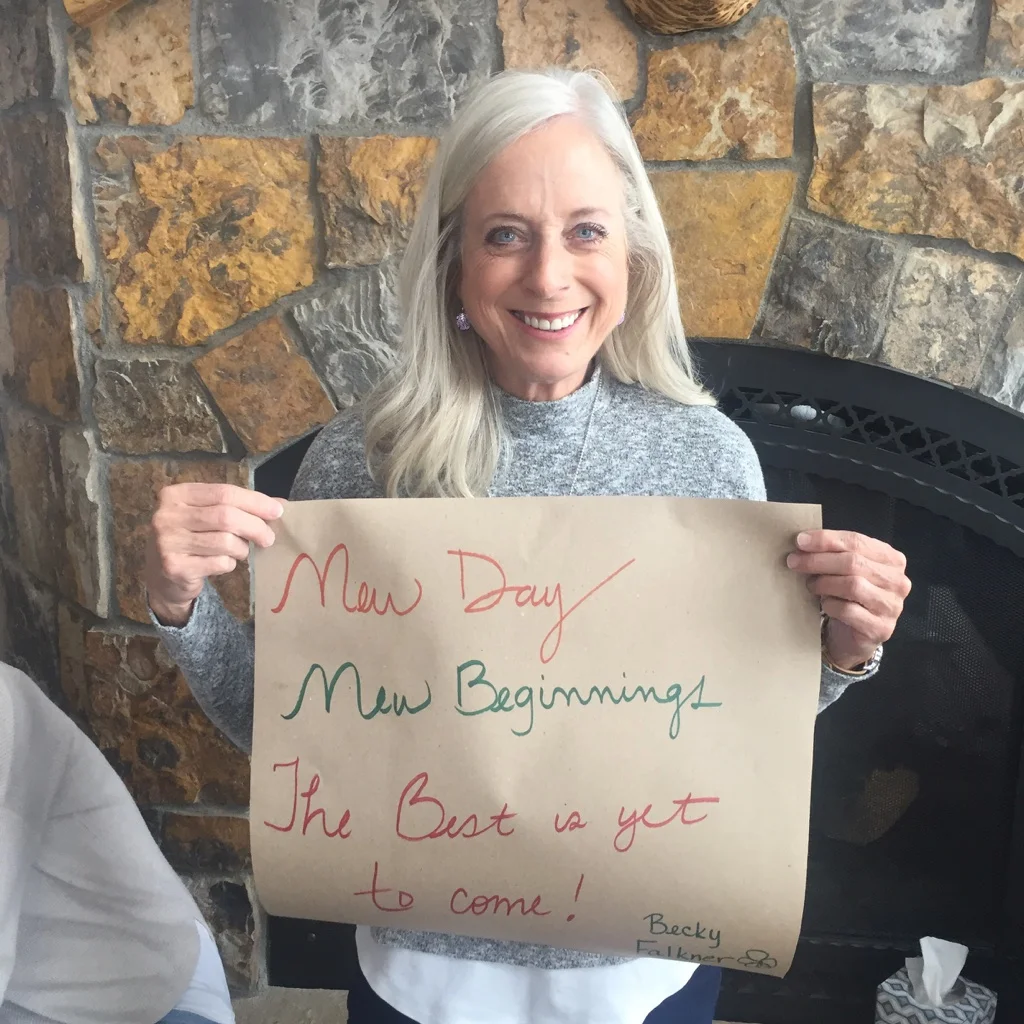 New Day
New Beginnings
The Best is yet
to come!
Becky
Falkner